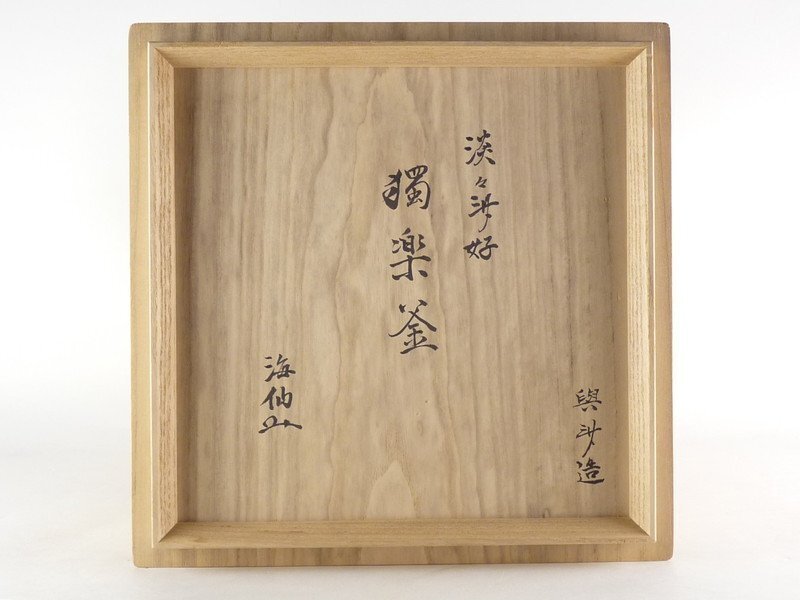 淡々斎好
獨楽釜
與斎造
海仙